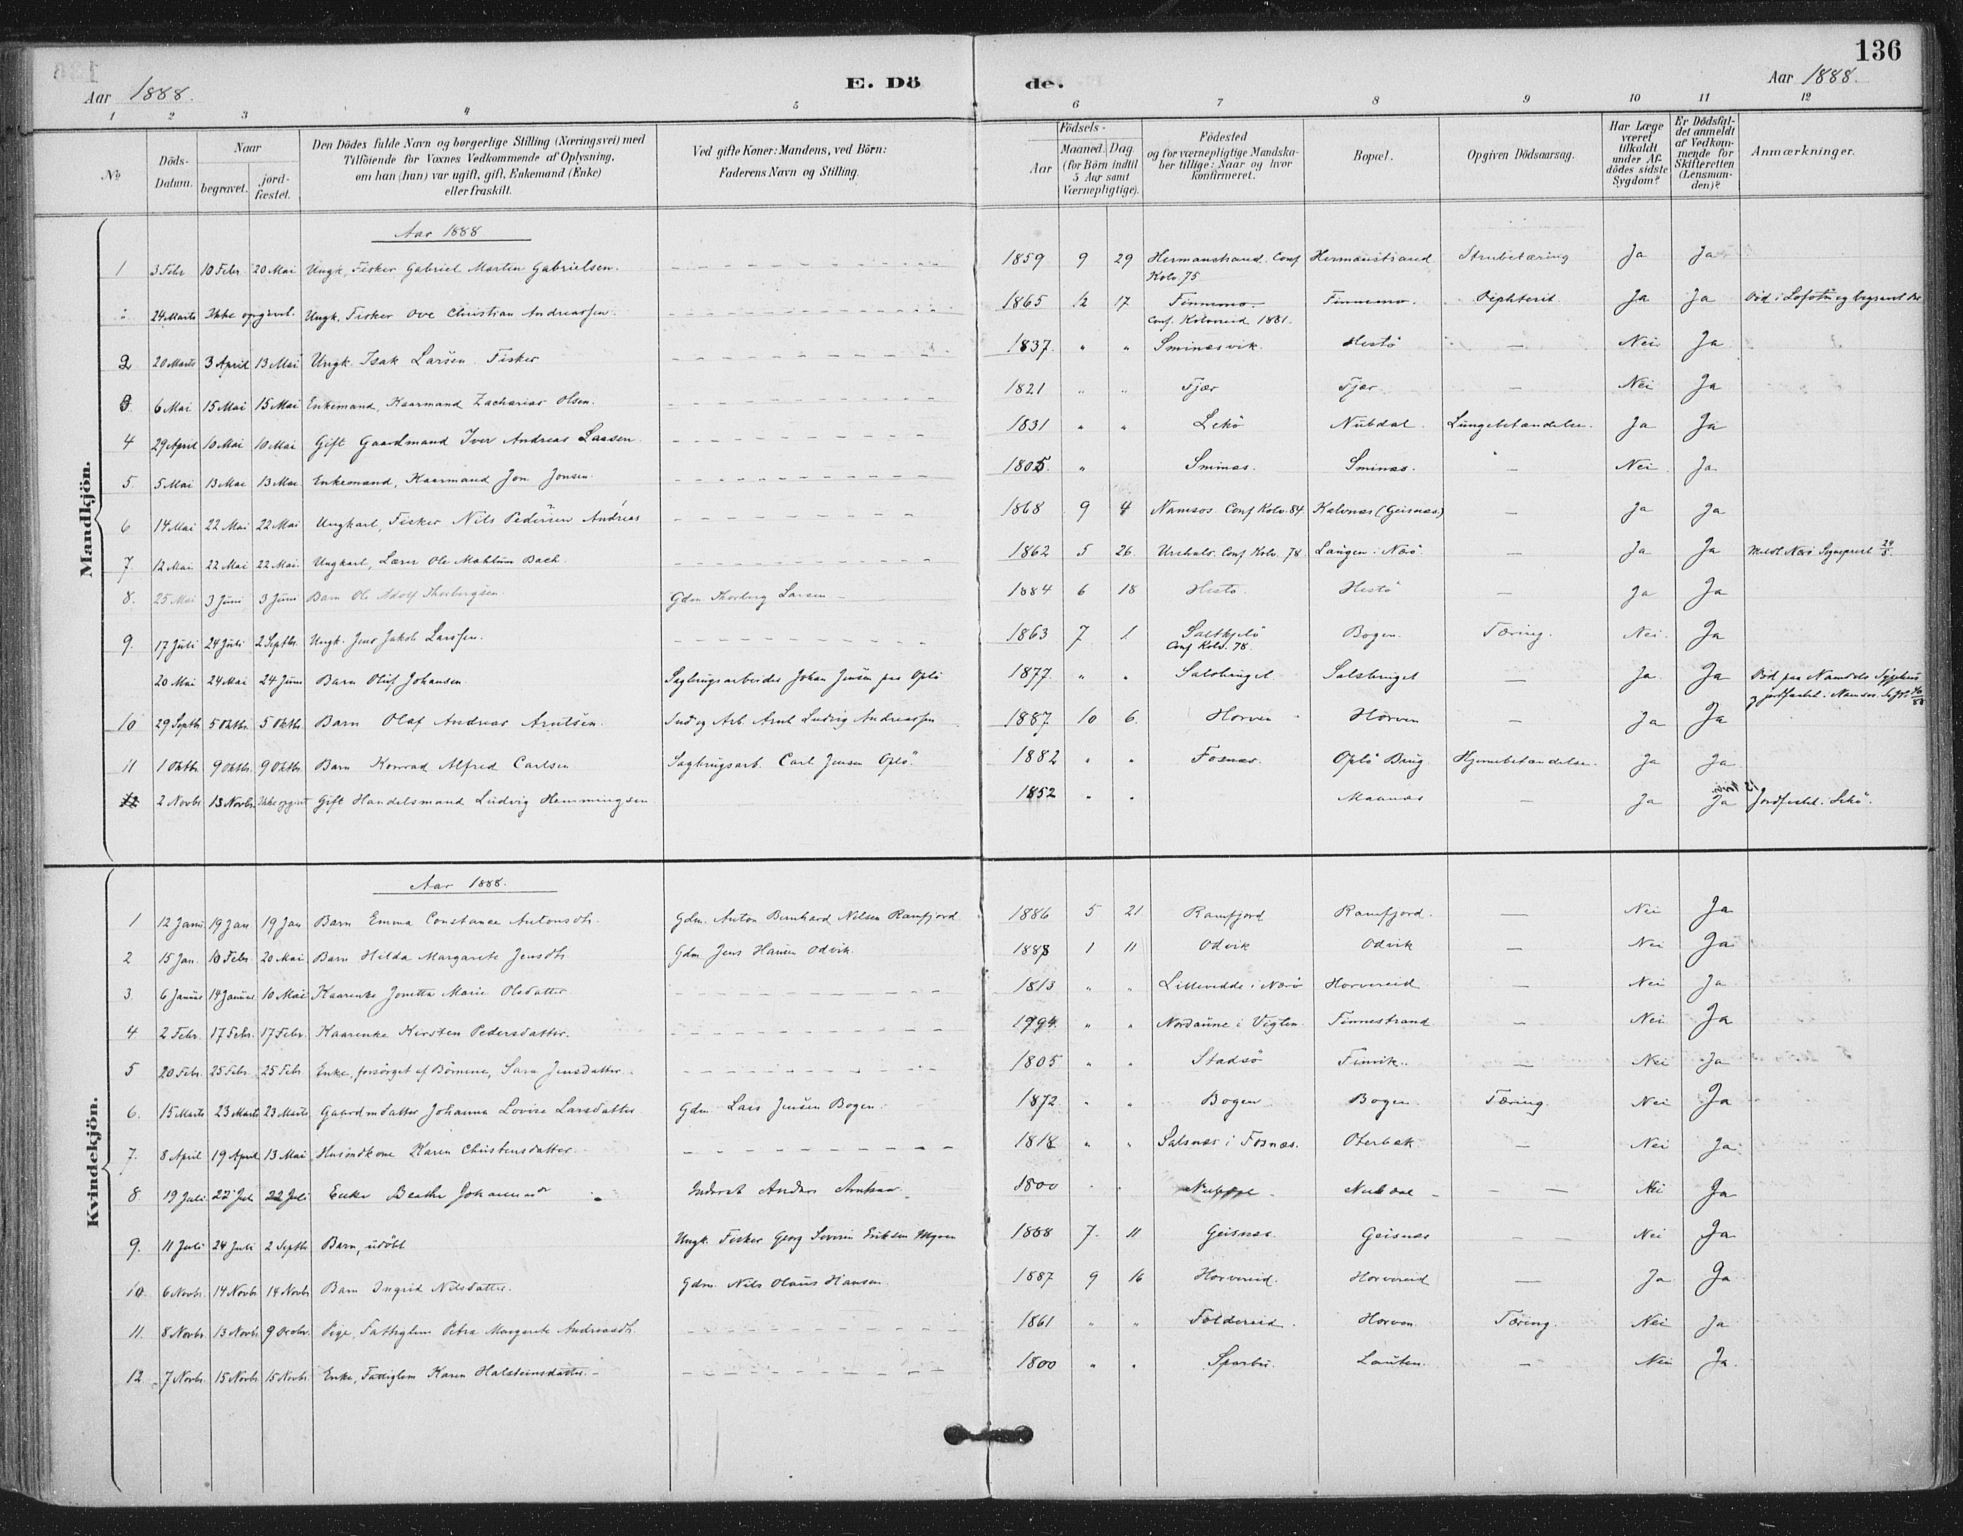 136
Aar 1888.
E. Döde.
Aar 1888.
1 2 3 4 5 6 7 8 9 10 11 12
No
Döds-Datum.
Naar
begravet.
jord-fæstet.
Den Dödes fulde Navn og borgerlige Stilling (Næringsvei) med
Tilföiende for Voxnes Vedkommende af Oplysning,
om han (hun) var ugift, gift, Enkemand (Enke)
eller fraskilt.
Ved gifte Koner: Mandens, ved Börn:
Faderens Navn og Stilling.
Födsels-
Aar
Maaned. Dag
(for Börn indtil
5 Aar samt
Værnepligtige).
Födested
og for værnepligtige Mandska-
ber tillige: Naar og hvor
konfirmeret.
Bopæl.
Opgiven Dödsaarsag.
Har Læge
været
tilkaldt
under Af-
dödes sidste
Sygdom?
Er Dödsfal-
det anmeldt
af Vedkom-
mende for
Skifteretten
(Lensman-
den)?
Anmærkninger.
Mandkjön.
Aar 1888
1 3 Febr 10 Febr. 20 Mai Ungk. Fisker Gabriel Morten Gabrielsen. 1859 9 29 Hermanstrand. Conf Kolv. 75 Hermanstrand Strubetæring Ja Ja
24 Marts Ikke opgivet. Ungk. Fisker Ove Christian Andreassen. 1865 12 17 Finnemo. Conf. Kolvereid 1881. Finnemo. Diphterit. Ja Ja Död i Lofoten og begravet
2 20 Marts 3 April 13 Mai Ungk. Isak Larsen Fisker 1837. " " Sminæsvik Hestö — Nei Ja
3. 6 Mai 15 Mai 15 Mai Enkemand, Kaarmand Zacharias Olsen. 1821 " " Fjær Fjær — Nei Ja
4 29 April 10 Mai 10 Mai Gift Gaardmand Iver Andreas Larsen 1831 " " Lekö Nubdal Lungebetændelse. Ja Ja
5. 5 Mai 13 Mai 13 Mai Enkemand, Kaarmand Jon Jonsen. 1805. " Sminæs. Sminæs. — Nei Ja
6 14 Mai 22 Mai 22 Mai Ungkarl, Fisker Nils Pedersen Andreas 1868 9 4 Namsos Conf Kolv. 84 Kalvnæs (Geisnæs) — Ja Ja
7. 12 Mai 22 Mai 22 Mai. Ungkarl, Lærer Ole Mohlum Bach. 1862 5 26. Conf Kolv. 78 Laugen i Nærö. — Ja Ja Meldt Nærö Sogneprest
8. 25 Mai 3 Juni 3 Juni Barn Ole Adolf Thorbergsen. Gdm. Thorberg Larsen 1884 6 18 Hestö. Hestö — Ja Ja
9. 17 Juli 24 Juli 2 Septbr. Ungk. Jens Jakob Larssen. 1863 7 1 Saltkjelö Conf Kolv. 78. Bogen. Tæring. Nei. Ja
20 Mai 24 Mai 24 Juni Barn Oluf Johansen. Sagbrugsarbeider Johan Jensen paa Oplö 1877. " " Salsbruget. Salsbruget — Ja Ja Död paa Namdals Sygehus og jordfæstet i Namsos
10 29 Septbr 5 Oktbr. 5 Oktbr. Barn Olaf Andreas Arntsen. Ind og Arb Arnt Ludvig Andreassen 1887 10 6. Horven Horven — Ja Ja
11 1 Oktbr. 9 Oktbr. 9 Oktbr. Barn Konrad Alfred Carlsen Sagbrugsarb. Carl Jensen Oplö. 1882 " " Fosnæs. Oplö Brug Hjernebetændelse. Ja Ja
12 2 Novbr 13 Novbr. Ikke opgivet Gift Handelsmand Ludvig Hemmingsen 1852 " " Maanæs — Ja Ja Jordfæstet i Lekö.
Kvindekjön.
Aar 1888.
1 12 Janu 19 Jan 19 Jan Barn Emma Constance Antonsdtr. Gdm. Anton Bernhard Nilsen Ramfjord 1886 5 21 Ramfjord Ramfjord. — Nei Ja
2 15 Jan. 10 Febr. 20 Mai Barn Hilda Margarete Jensdtr Gdm. Jens Hansen Odvik 1888 1 11 Odvik Odvik — Nei Ja
3. 6 Januar 14 Januar 10 Mai Kaarenke Jonetta Marie Olsdatter 1813 " " Lillevedde i Nærö Horvereid. — Nei Ja
4 2 Febr. 17 Febr. 17 Febr. Kaarenke Kirsten Pedersdatter. 1794. " " Nordaune i Vigten Finnestrand — Nei Ja
5 20 Febr. 25 Febr. 25 Febr. Enke, forsörget af Börnene, Sara Jensdatter. 1805 " " Stadsö Finvik. — Nei Ja
6. 15 Marts 23 Marts 23 Marts Gaardmdatter Johanna Lovise Larsdatter Gdm. Lars Jensen Bogen. 1872. " " Bogen Bogen Tæring. Nei Ja
7. 8 April 19 April 13 Mai Husmdkone Karen Christensdatter 1818 " " Salsnæs i Fosnæs. Oterbæk — Nei Ja
8 19 Juli 22 Juli 22 Juli Enke Beathe Johannesdr Inderst Anders 1800 " " Nubdal — Nei Ja
9. 11 Juli 24 Juli 2 Septbr Barn, udöbt Ungk. Fisker Georg Severin Eriksen 1888 7. 11 Geisnæs. Geisnæs — Nei Ja
10. 6 Novbr. 14 Novbr 14 Novbr Barn Ingrid Nilsdatter. Gdm. Nils Olaus Hansen. 1887 9 16 Horvereid. Horvereid — Ja Ja
11. 8 Novbr. 13 Novbr. Pige, Fattiglem Petra Margarete Andreasdtr. 1861 " " Foldereid. Horven Tæring. Nei Ja
12. 7 Novbr. 15 Novbr 15 Novbr. Enke, Fattiglem Karen Halsteinsdatter. 1800 " " Sparbu. Lauten. — Nei Ja